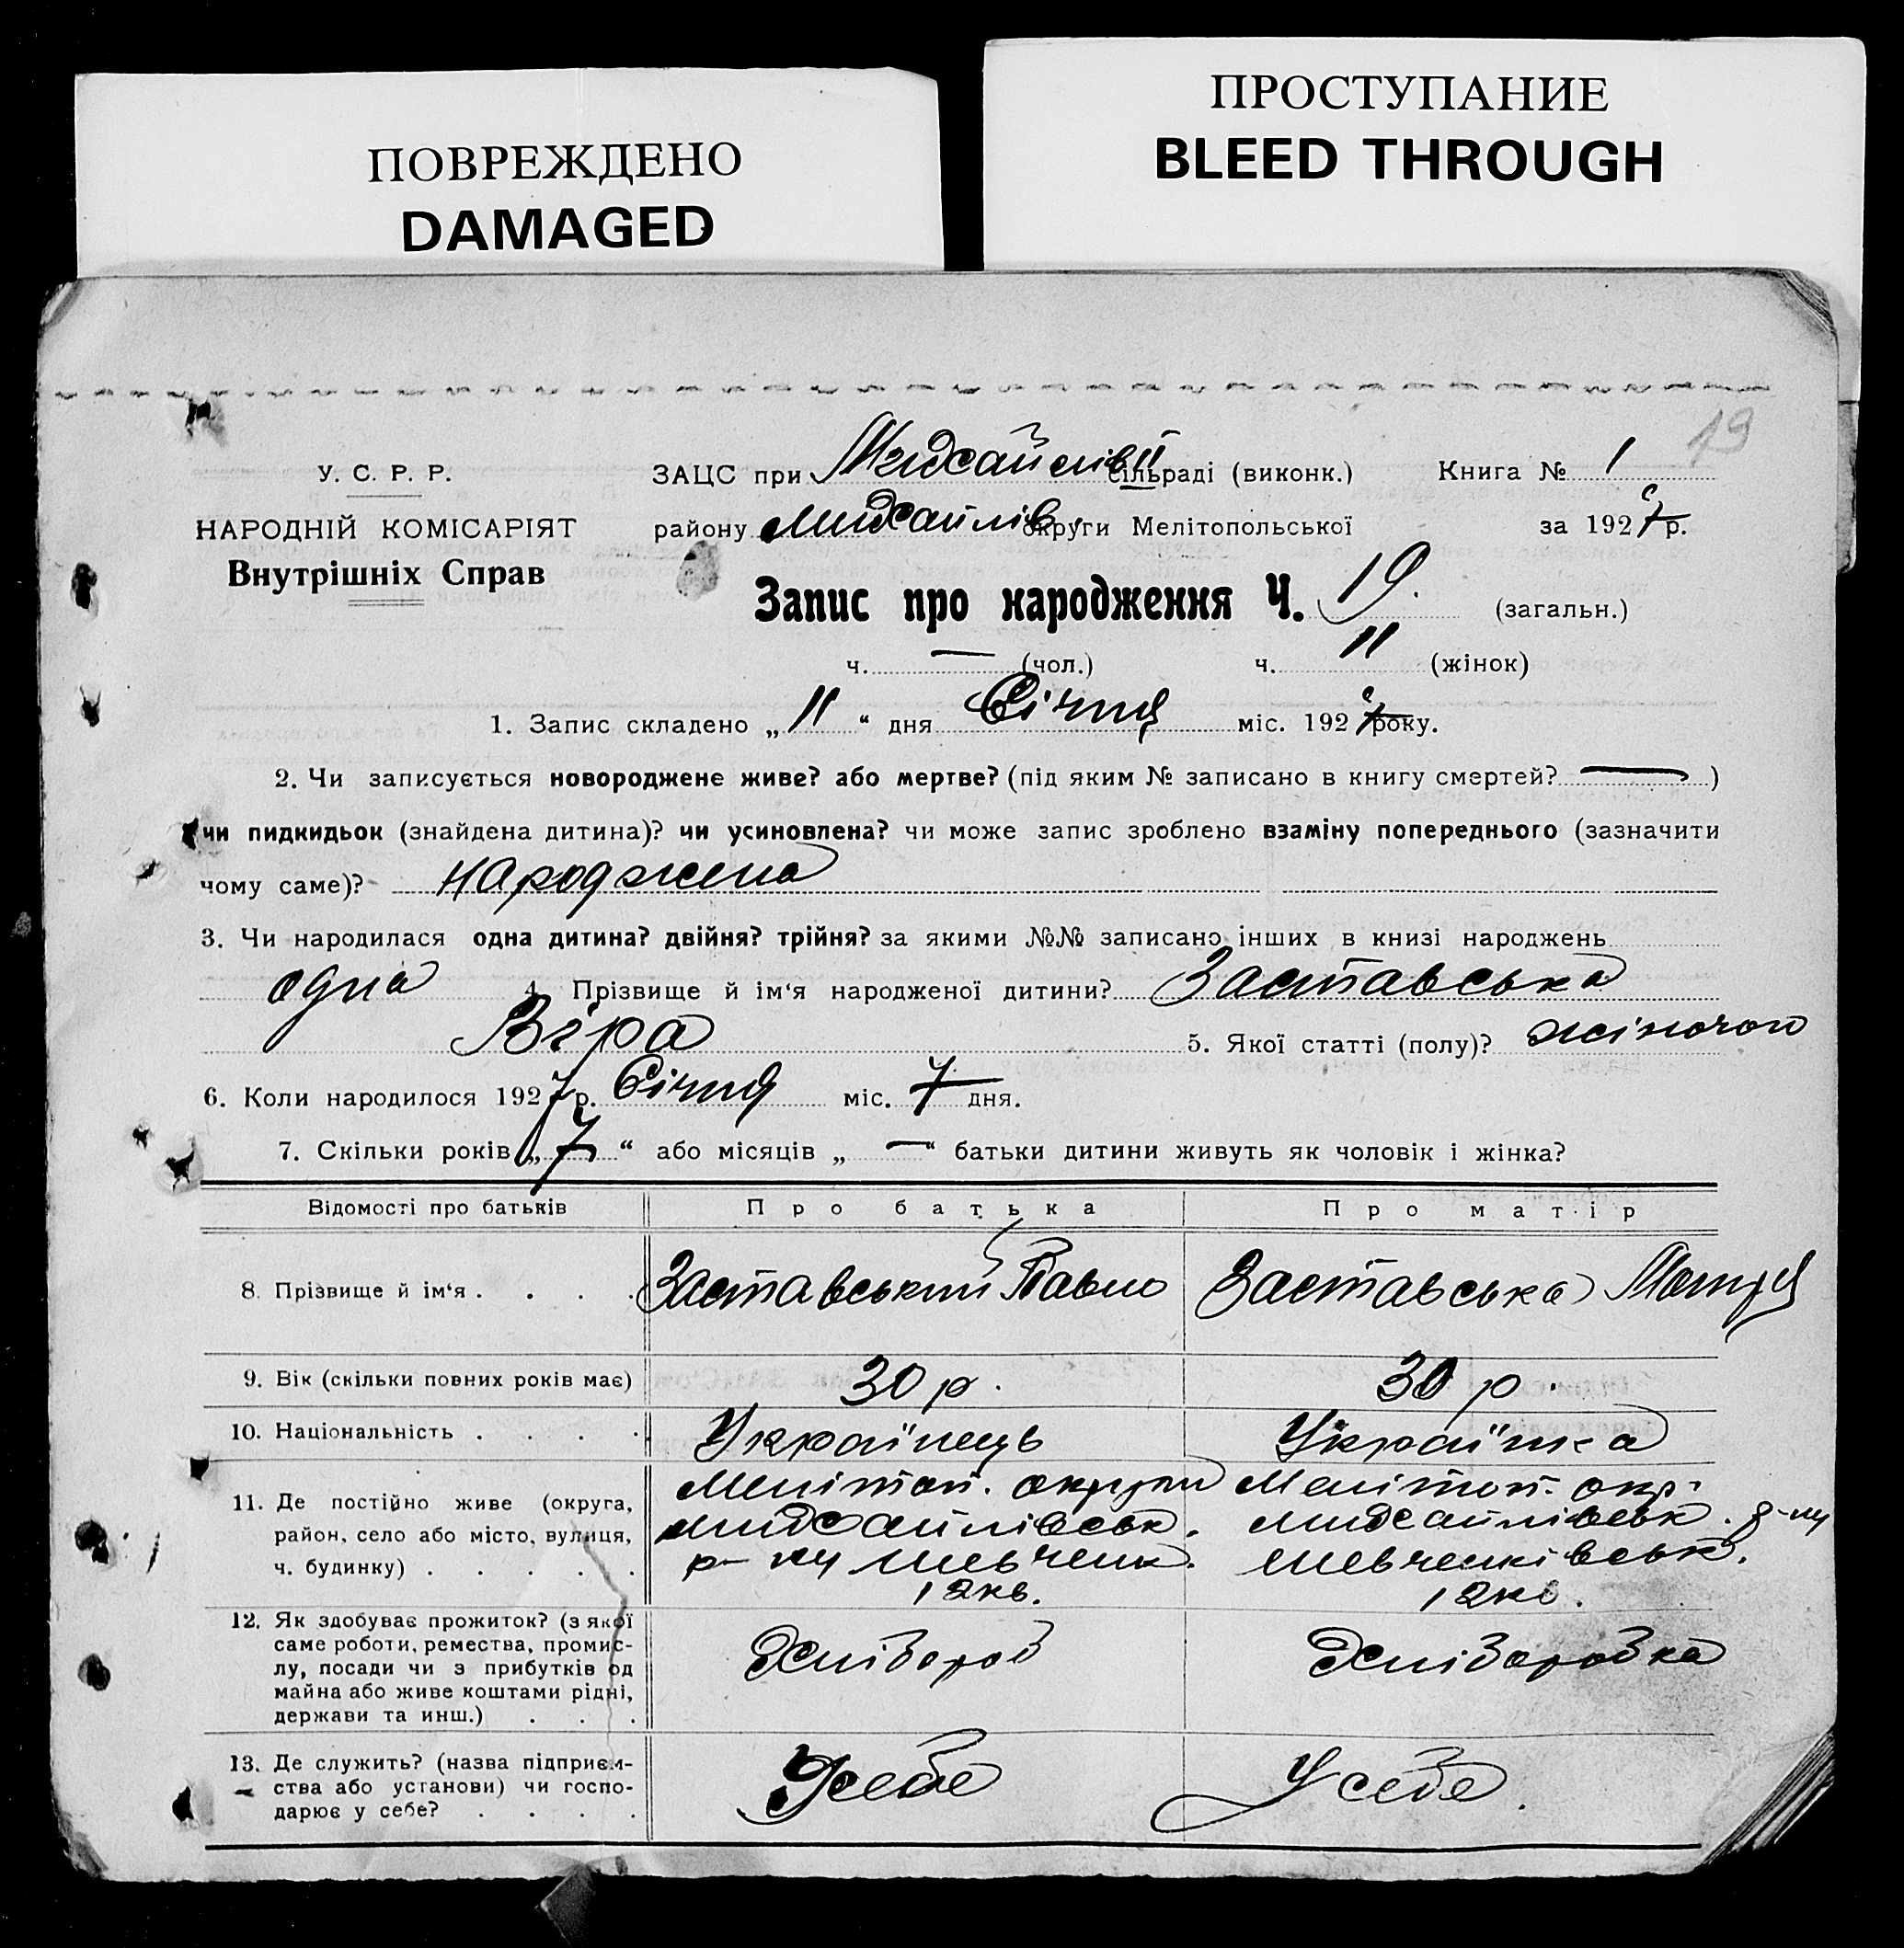 ПОВРЕЖДЕНО
DAMAGED
ПРОСТУПАНИЕ
BLEED THROUGH
19
У. С. Р. Р.
НАРОДНІЙ КОМІСАРІЯТ
Внутрішніх Справ
ЗАЦС при Михайлів II сільраді (виконк.) Книга № 1
району Михайлів. округи Мелітопольської за 1927 р.
Запис про народження Ч. 19. (загальн.)
ч. — (чол.) ч. 11 (жінок)
1. Запис складено „ 11 “ дня Січня міс. 1927 року.
2. Чи записується новороджене живе? або мертве? (під яким № записано в книгу смертей? — )
чи пидкидьок (знайдена дитина)? чи усиновлена? чи може запис зроблено взаміну попереднього (зазначити
чому саме)? народжена
3. Чи народилася одна дитина? двійня? трійня? за якими №№ записано інших в книзі народжень
одна 4. Прізвище й ім‘я народженої дитини? Заставська
Віра 5. Якої статті (полу)? жіночої
6. Коли народилося 1927 р. Січня міс. 7 дня.
7. Скільки років „ 7 “ або місяців „ — “ батьки дитини живуть як чоловік і жінка?
Відомості про батьків Про батька Про матір
8. Прізвище й ім‘я . . . . Заставський Павло Заставська Мотря
9. Вік (скільки повних років має) 30 р. 30 р.
10. Національність . . . . Українець Українка
11. Де постійно живе (округа, Меліт. округи Меліт. окр.
район, село або місто, вулиця, Михайлівськ. Михайлівськ. р-ну
ч. будинку) . . . . . р-ну Шевченк. Шевченківськ.
12 кв. 12 кв.
12. Як здобуває прожиток? (з якої
саме роботи, ремества, промис-
лу, посади чи з прибутків од Хлібороб Хліборобка
майна або живе коштами рідні,
держави та инш.) . . .
13. Де служить? (назва підприєм-
ства або установи) чи госпо- У себе У себе.
дарює у себе? . . . .